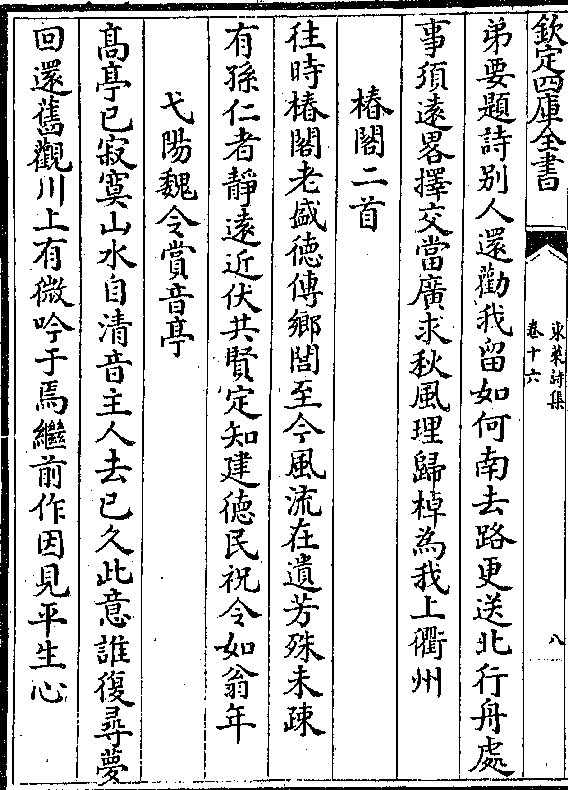 欽定四庫全書
東萊詩集
卷十六
八
弟要題詩别人還勸我留如何南去路更送北行舟處
事須遠畧擇交當廣求秋風理歸棹為我上衢州
椿閣二首
往時椿閣老盛德傳鄉閭至今風流在遺芳殊未疎
有孫仁者靜遠近伏其賢定知建德民祝令如翁年
弋陽魏令賞音亭
髙亭已寂寞山水自清音主人去已久此意誰復尋夢
回還舊觀川上有微吟于焉繼前作因見平生心